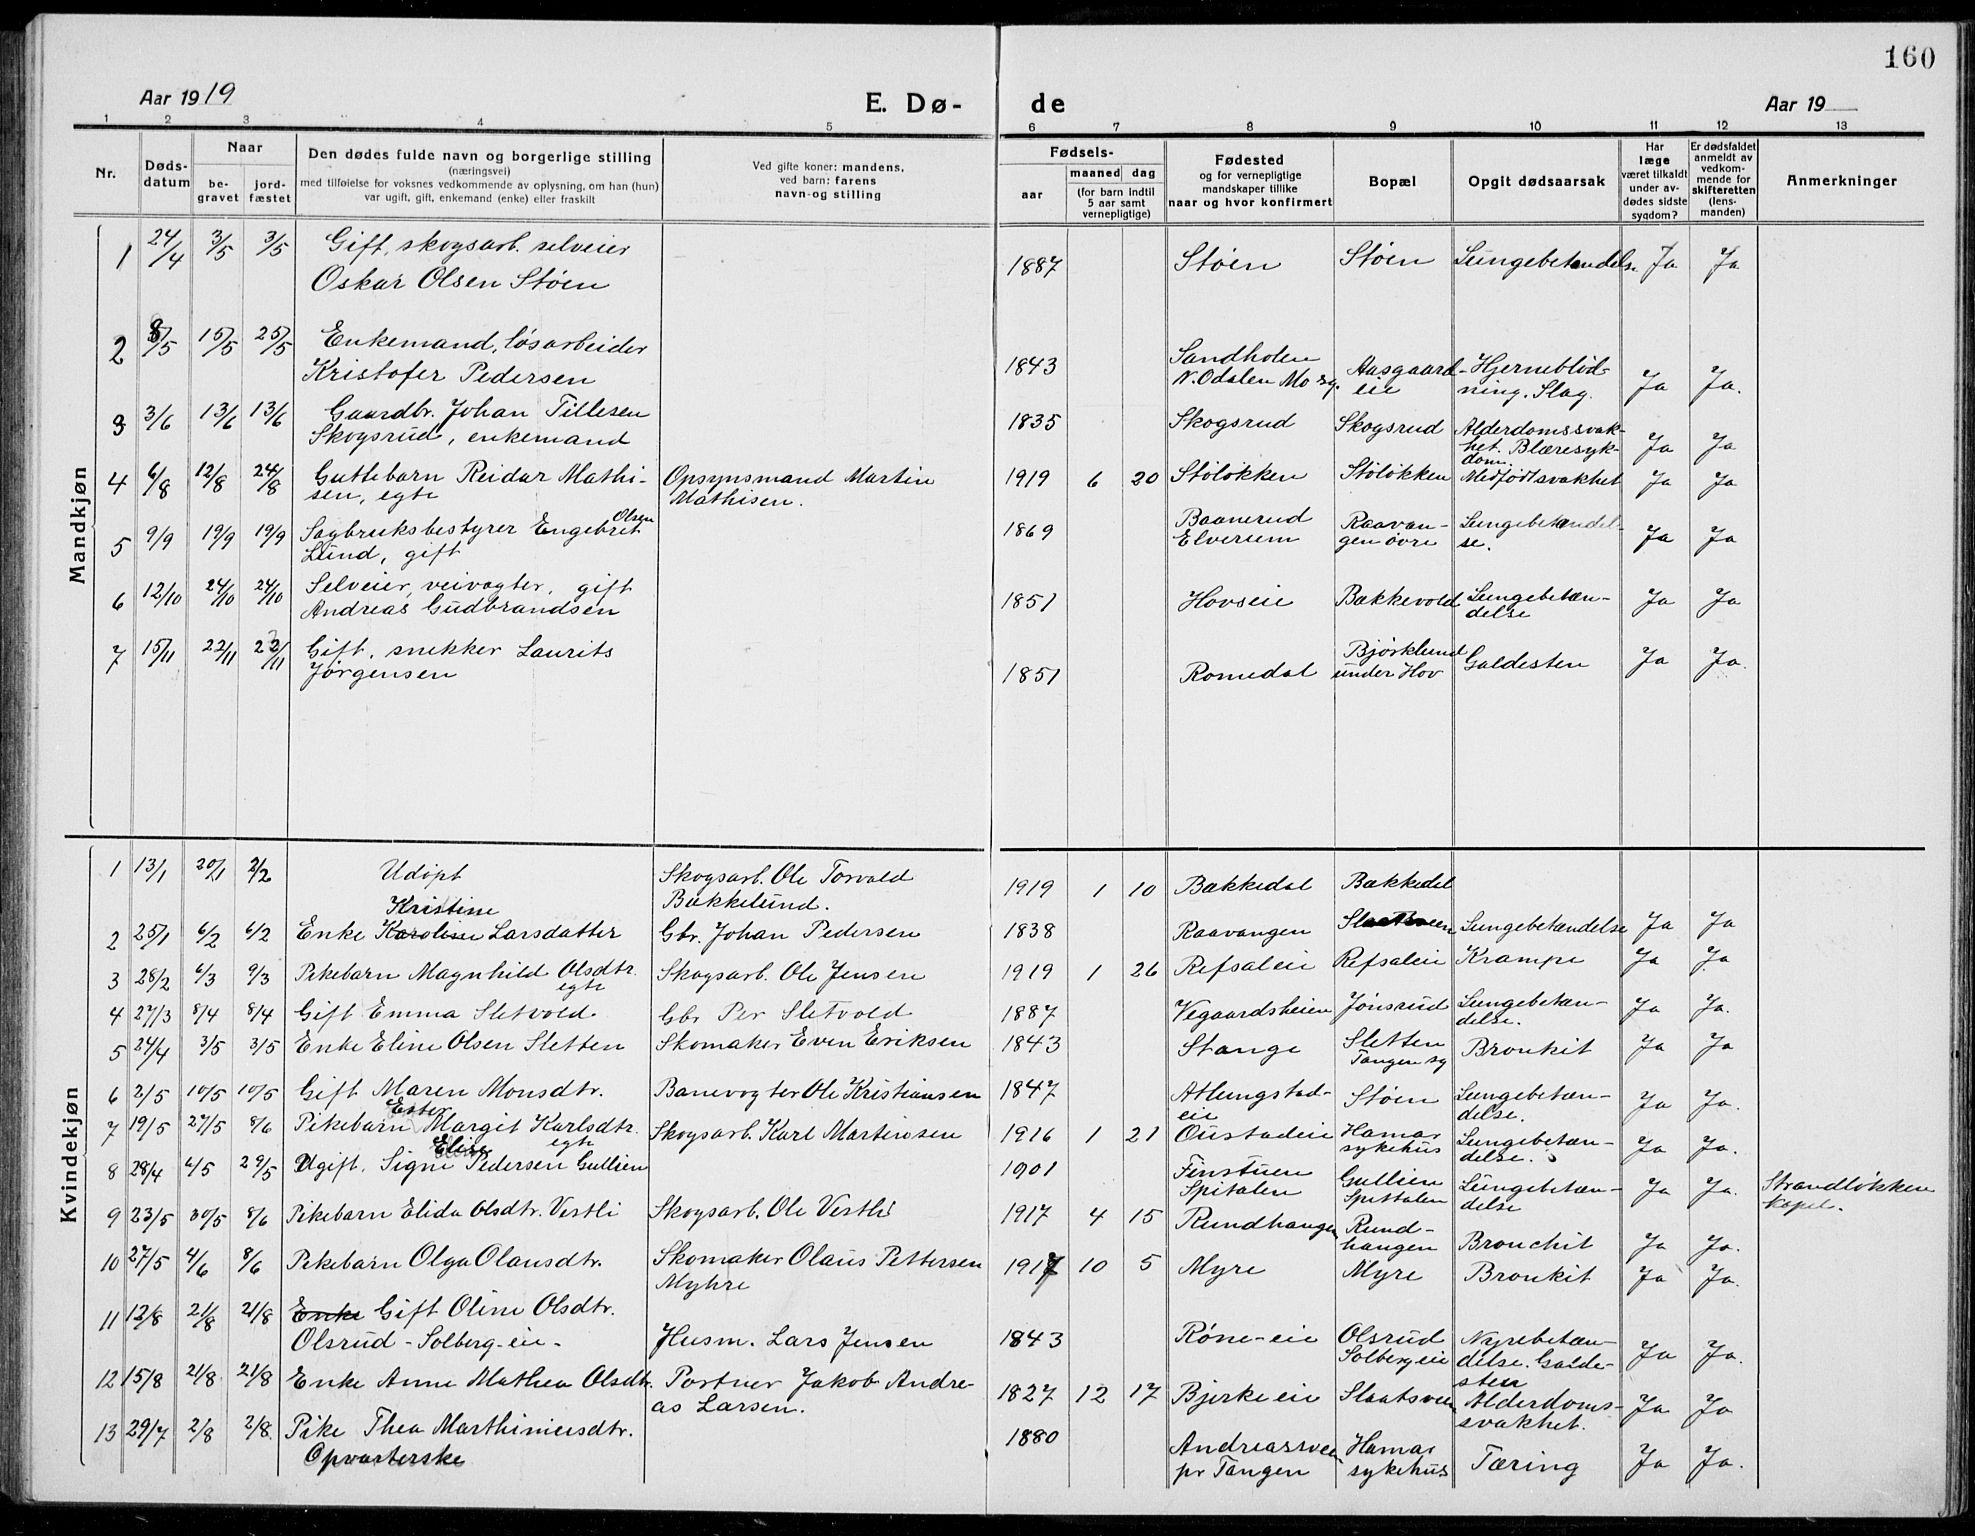 160
Aar 1919
E. Dø-
de
Aar 19
1 2 3 4 5 6 7 8 9 10 11 12 13
Nr.
Døds-
datum
Naar
be-
gravet
jord-
fæstet
Den dødes fulde navn og borgerlige stilling
(næringsvei)
med tilføielse for voksnes vedkommende av oplysning, om han (hun)
var ugift, gift, enkemand (enke) eller fraskilt
Ved gifte koner: mandens,
ved barn: farens
navn og stilling
Fødsels-
aar
maaned dag
(for barn indtil
5 aar samt
vernepligtige)
Fødested
og for vernepligtige
mandskaper tillike
naar og hvor konfirmert
Bopæl
Opgit dødsaarsak
Har
læge
været tilkaldt
under av-
dødes sidste
sygdom?
Er dødsfaldet
anmeldt av
vedkom-
mende for
skifteretten
(lens-
manden)
Anmerkninger
Mandkjøn
1 24/4 3/5 3/5 Gift, skogsarb. selveier
Oskar Olsen Støen
1887 Støen Støen Lungebetændelse Ja Ja
2 8/5 15/5 25/5 Enkemand, løsarbeider
Kristofer Pedersen
1843 Sandholen
N. Odalen Mo sg.
Aasgaard-
eie
Hjerneblød-
ning. Slag. Ja Ja.
3 3/6 13/6 13/6 Gaardbr. Johan Tillesen
Skogsrud, enkemand
1835 Skogsrud Skogsrud Alderdomssvak-
het. Blæresyk-
dom. Ja Ja
4 6/8 12/8 24/8 Guttebarn Reidar Mathi-
sen, egte
Opsynsmand Martin
Mathisen.
1919 6 20 Støløkken Støløkken Medfødt svakhet Ja Ja
5 9/9 19/9 19/9 Sagbruksbestyrer Engebret Olsen
Lund, gift
1869 Baanerud
Elverum
Raavan-
gen øvre
Lungebetændel-
se. Ja Ja
6 12/10 24/10 24/10 Selveier, veivogter, gift
Andreas Gudbrandsen
1851 Hovseie Bakkevold Lungebetæn-
delse Ja Ja
7 15/11 22/11 22/11 Gift, snekker Laurits
Jørgensen
1851 Romedal Bjørklund
under Hov
Galdesten Ja Ja.
Kvindekjøn
1 13/1 20/1 2/2 Udøpt
Skogsarb. Ole Torvald
Bakkelund.
1919 1 10 Bakkedal Bakkedal
2 25/1 6/2 6/2 Enke Karoline Kristine Larsdatter Gbr. Johan Pedersen 1838 Raavangen Slaatsveen Lungebetændelse Ja Ja
3 28/2 6/3 9/3 Pikebarn Magnhild Olsdtr.
egte
Skogsarb. Ole Jensen 1919 1 26 Refsaleie Refsaleie Krampe Ja Ja
4 27/3 8/4 8/4 Gift Emma Sletvold. Gbr Per Sletvold 1887 Vegaardsheien Jønsrud Lungebetæn-
delse. Ja Ja.
5 24/4 3/5 3/5 Enke Eline Olsen Sletten Skomaker Even Eriksen 1843 Stange Sletten
Tangen sg
Bronkit Ja Ja
6 2/5 10/5 10/5 Gift Maren Monsdtr. Banevogter Ole Kristiansen 1847 Atlungstad-
eie
Støen Lungebetæn-
delse. Ja Ja.
7 19/5 27/5 8/6 Pikebarn Ester Margit Karlsdtr.
egte
Skogsarb. Karl Martinsen 1916 1 21 Oustadeie Hamar
sykehus
Lungebetæn-
delse. Ja Ja.
8 28/4 6/5 29/5 Ugift. Signe Elise Pedersen Gullien 1901 Finstuen
Spitalen
Gullien
Spittalen
Lungebetæn-
delse Ja Ja. Strandløkken
kapel.
9 23/5 30/5 8/6 Pikebarn Elida Olsdtr. Vestli Skogsarb. Ole Vestli 1917 4 15 Rundhaugen Rund-
haugen
Bronchit Ja Ja.
10 27/5 4/6 8/6 Pikebarn Olga Olausdtr. Skomaker Olaus Pettersen
Myhre
1917 10 5 Myre Myre Bronkit Ja Ja.
11 12/8 21/8 21/8 Enke Gift Oline Olsdtr.
Olsrud - Solberg-eie -
Husm. Lars Jensen 1843 Røne-eie Olsrud
Solbergeie
Nyrebetæn-
delse. Galde-
sten Ja Ja.
12 15/8 21/8 21/8 Enke Anne Mathea Olsdtr. Portner Jakob Andre-
as Larsen.
1827 12 17 Bjerke eie Slaatsveen Alderdoms-
svakhet. Ja Ja
13 29/7 2/8 2/8. Pike Thea Marthiniusdtr.
Opvarterske
1880 Andreassveen
pr Tangen
Hamar
sykehus
Tæring Ja Ja.